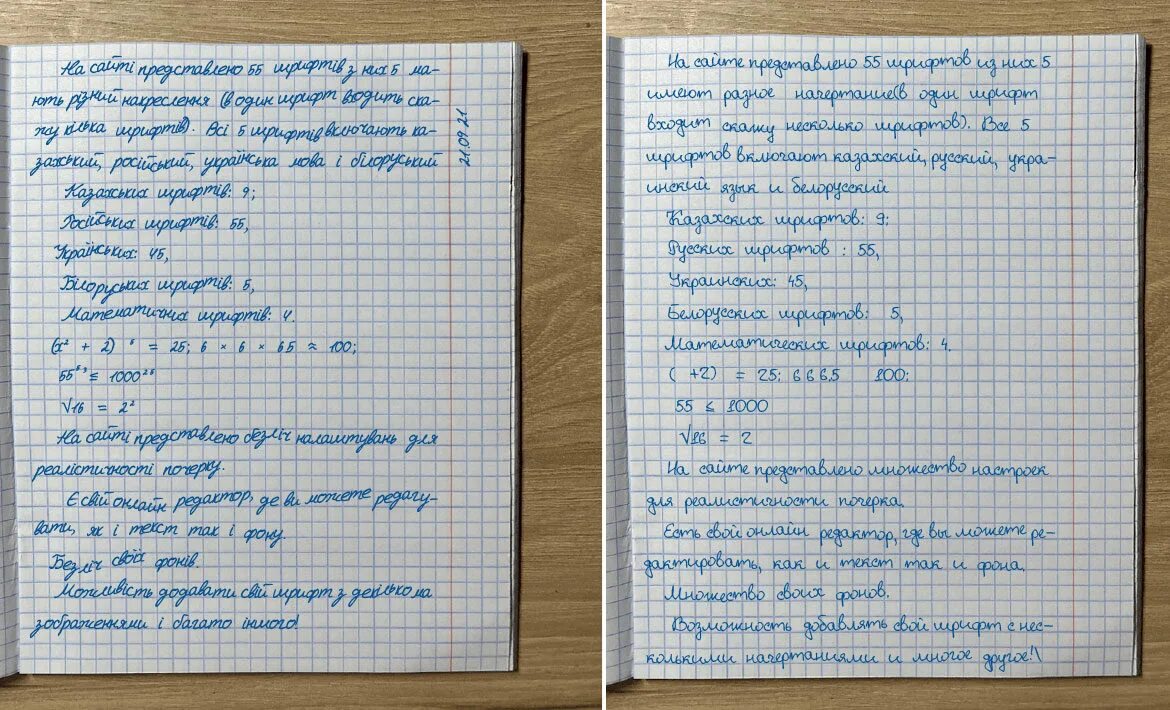 На сайті представлено 55 шрифтів з них 5 ма-
ють різний накреслення (в один шрифт входить ска-
жу кілька шрифтів). Всі 5 шрифтів включають ка-
захський, російський, українська мова і білоруський
21.09.21
Казахських шрифтів: 9;
Російських шрифтів: 55,
Українських: 45,
Білоруських шрифтів: 5,
Математичних шрифтів: 4.
(x² + 2) ⁶ = 25; 6 × 6 × 65 ≈ 100;
55⁵ ³ ≤ 1000²⁸
√16 = 2²
На сайті представлено безліч налаштувань для
реалістичності почерку.
Є свій онлайн редактор, де ви можете редагу-
вати, як і текст так і фону.
Безліч своїх фонів.
Можливість додавати свій шрифт з декількома
зображеннями і багато іншого!
На сайте представлено 55 шрифтов из них 5
имеют разное начертание(в один шрифт
входит скажу несколько шрифтов). Все 5
шрифтов включают казахский, русский, укра-
инский язык и белорусский
Казахских шрифтов: 9;
Русских шрифтов : 55,
Украинских: 45,
Белорусских шрифтов: 5,
Математических шрифтов: 4.
( +2) = 25; 6 6 6,5 100;
55 ≤ 1000
√16 = 2
На сайте представлено множество настроек
для реалистичности почерка.
Есть свой онлайн редактор, где вы можете ре-
дактировать, как и текст так и фона.
Множество своих фонов.
Возможность добавлять свой шрифт с нес-
колькими начертаниями и многое другое!\